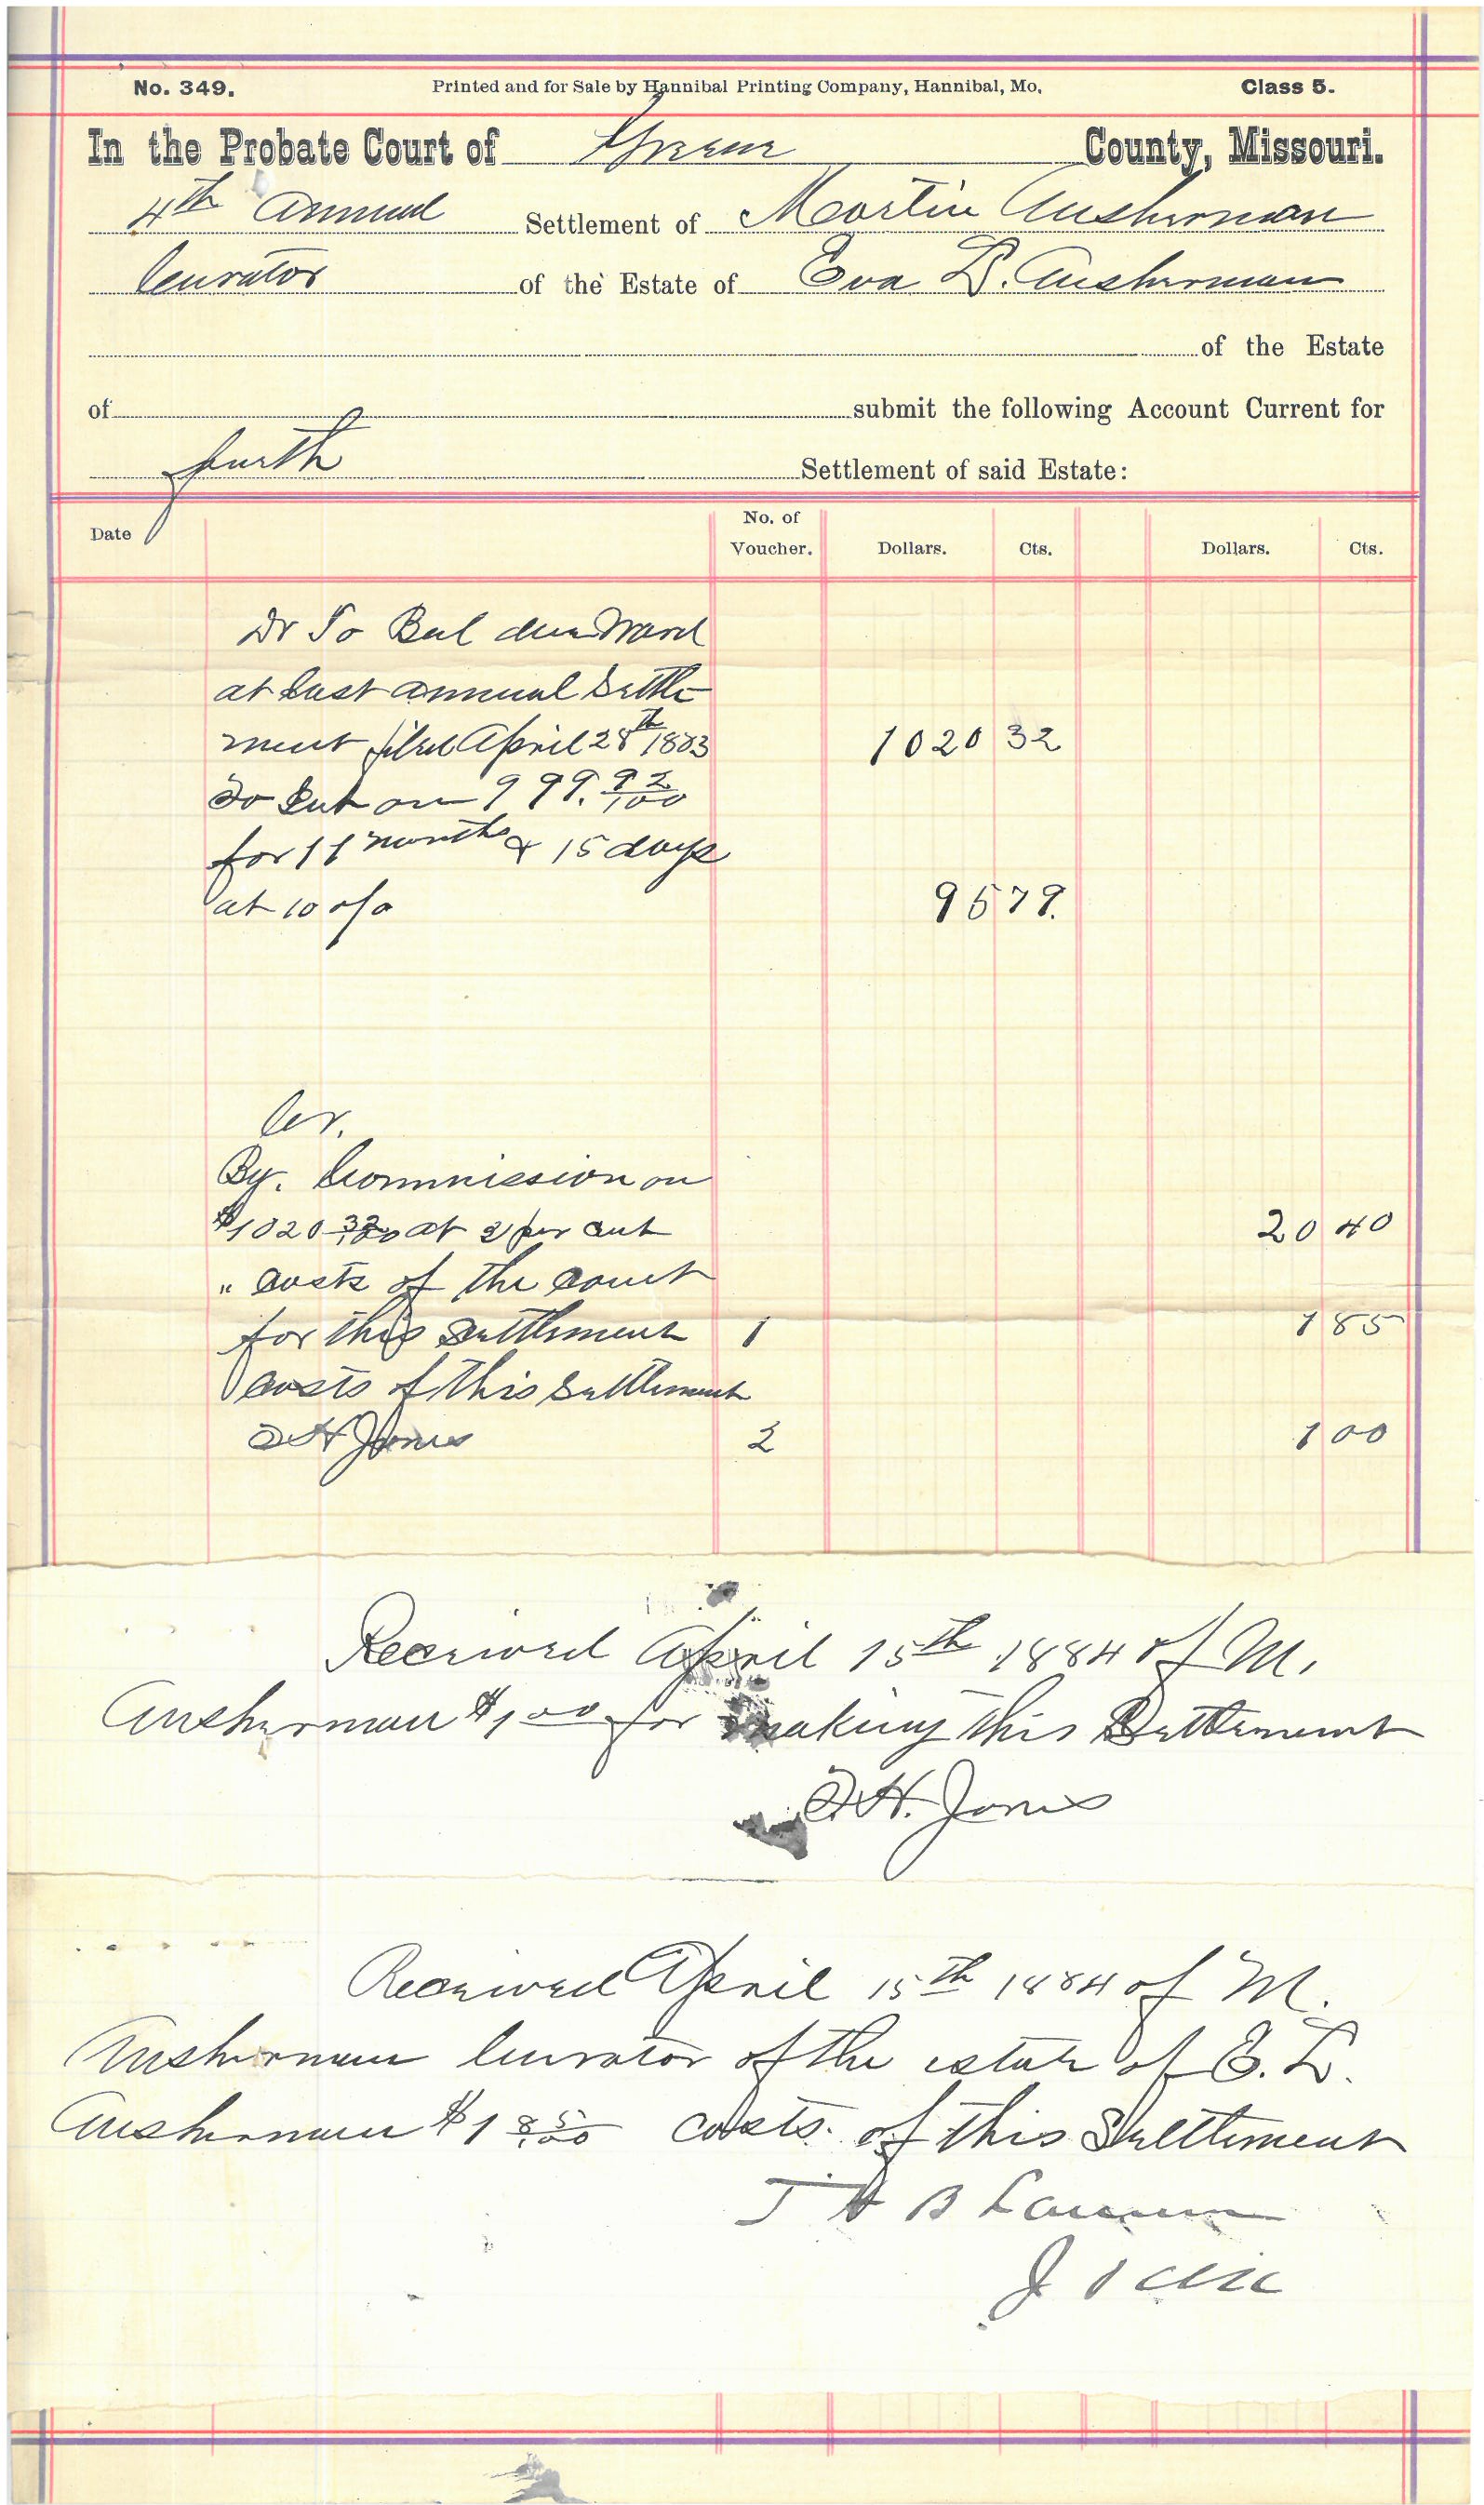 No. 349. Printed and for Sale by Hannibal Printing Company, Hannibal, Mo. Class 5.
In the Probate Court of Greene County, Missouri.
4th annual Settlement of Martin Ausherman
Curator of the Estate of Eva L. Ausherman
of the Estate
of submit the following Account Current for
fourth Settlement of said Estate:
Date No. of Voucher. Dollars. Cts. Dollars. Cts.
Dr To Bal due Ward
at last annual Settle-
ment filed April 28th 1883 1020 32
To Int on 999. 92/100
for 11 months & 15 days
at 10 o/o 95 79.
Cr.
By. Commission on
$1020 32/100 at 2 per cent 20 40
" costs of the court
for this settlement 1 1 85
Costs of this Settlement
H Jones 2 1 00
Received April 15th 1884 of M.
Ausherman $1 00 for making this Settlement
H. Jones
Received April 15th 1884 of M.
Ausherman Curator of the estate of E. L.
Ausherman $1 85/100 costs of this Settlement
T H B
J